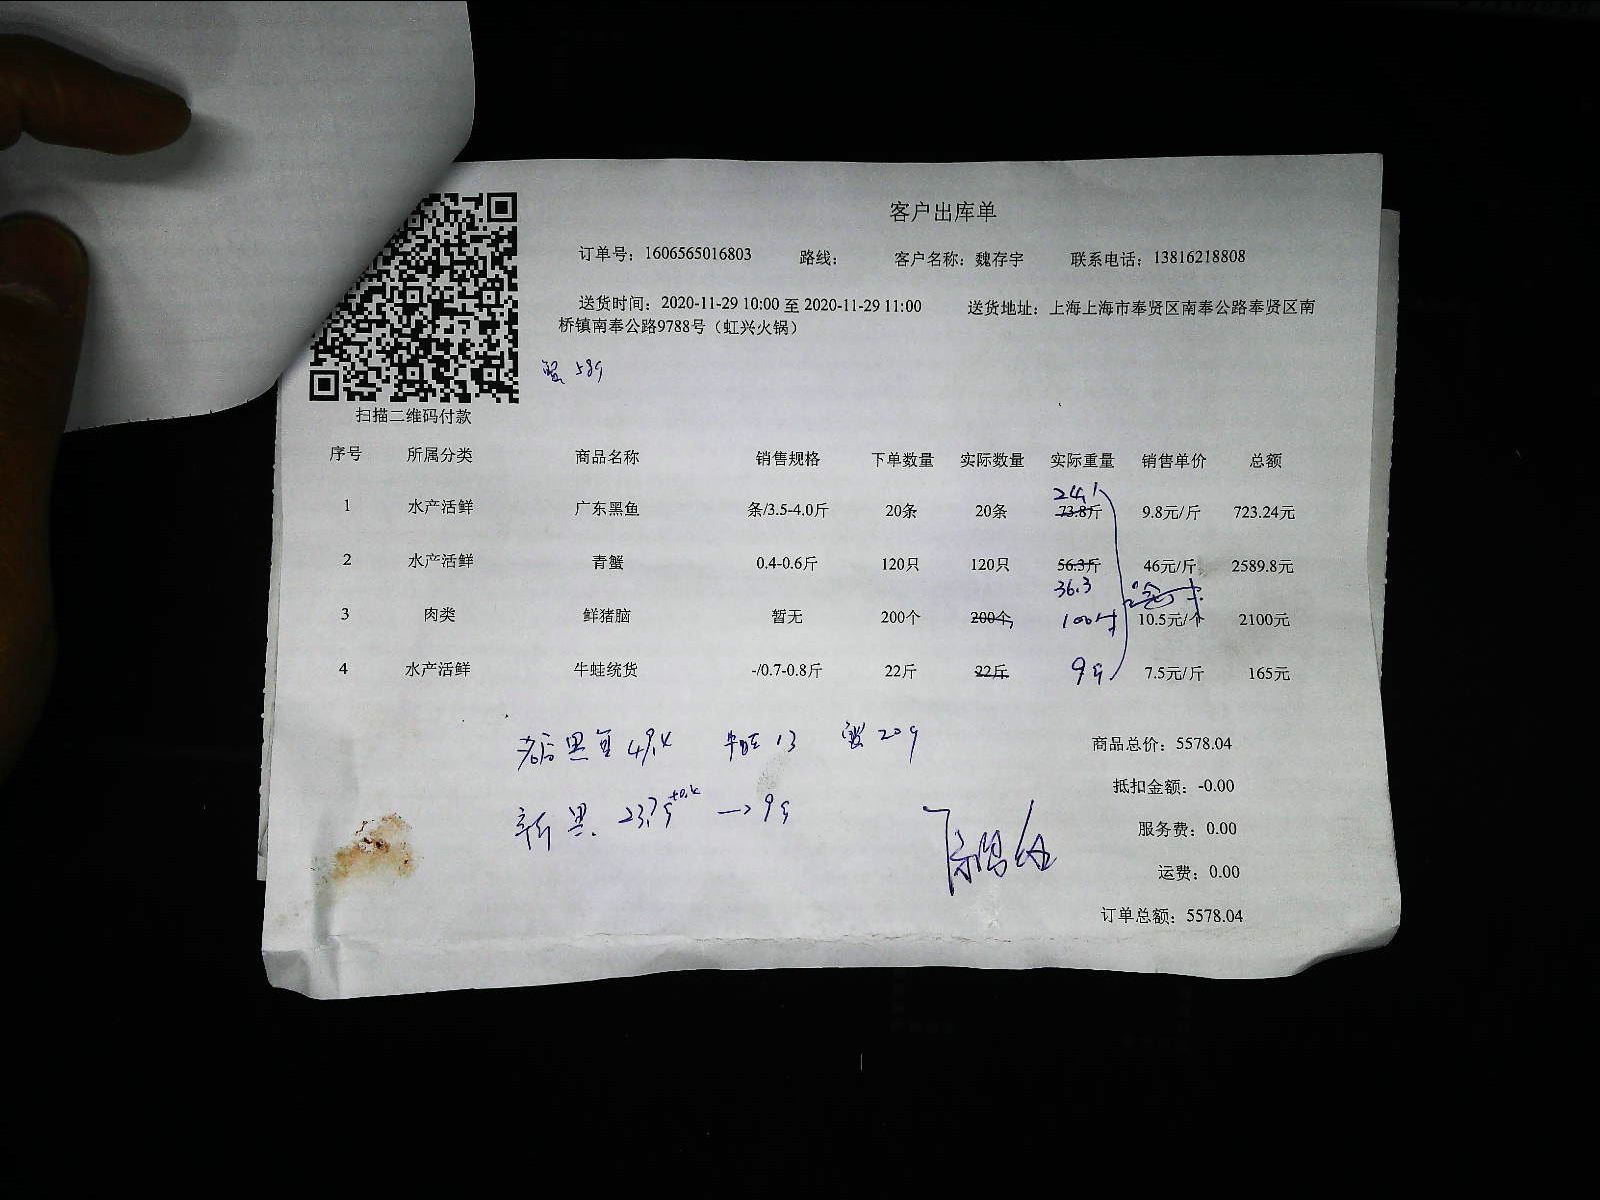 客户出库单
订单号：1606565016803 路线： 客户名称：魏存宇 联系电话：13816218808
送货时间：2020-11-29 10:00 至 2020-11-29 11:00 送货地址：上海上海市奉贤区南奉公路奉贤区南
桥镇南奉公路9788号（虹兴火锅）
蟹 58斤
扫描二维码付款
序号 所属分类 商品名称 销售规格 下单数量 实际数量 实际重量 销售单价 总额
24.1
1 水产活鲜 广东黑鱼 条/3.5-4.0斤 20条 20条 73.8斤 9.8元/斤 723.24元
2 水产活鲜 青蟹 0.4-0.6斤 120只 120只 56.3斤 46元/斤 2589.8元
36.3
3 肉类 鲜猪脑 暂无 200个 200个 100个 10.5元/个 2100元
4 水产活鲜 牛蛙统货 -/0.7-0.8斤 22斤 22斤 9斤 7.5元/斤 165元
黑鱼 49.4 牛蛙 13 蟹 20斤
新黑. 23.7斤 +0.4 → 9斤
商品总价：5578.04
抵扣金额：-0.00
服务费：0.00
运费：0.00
订单总额：5578.04